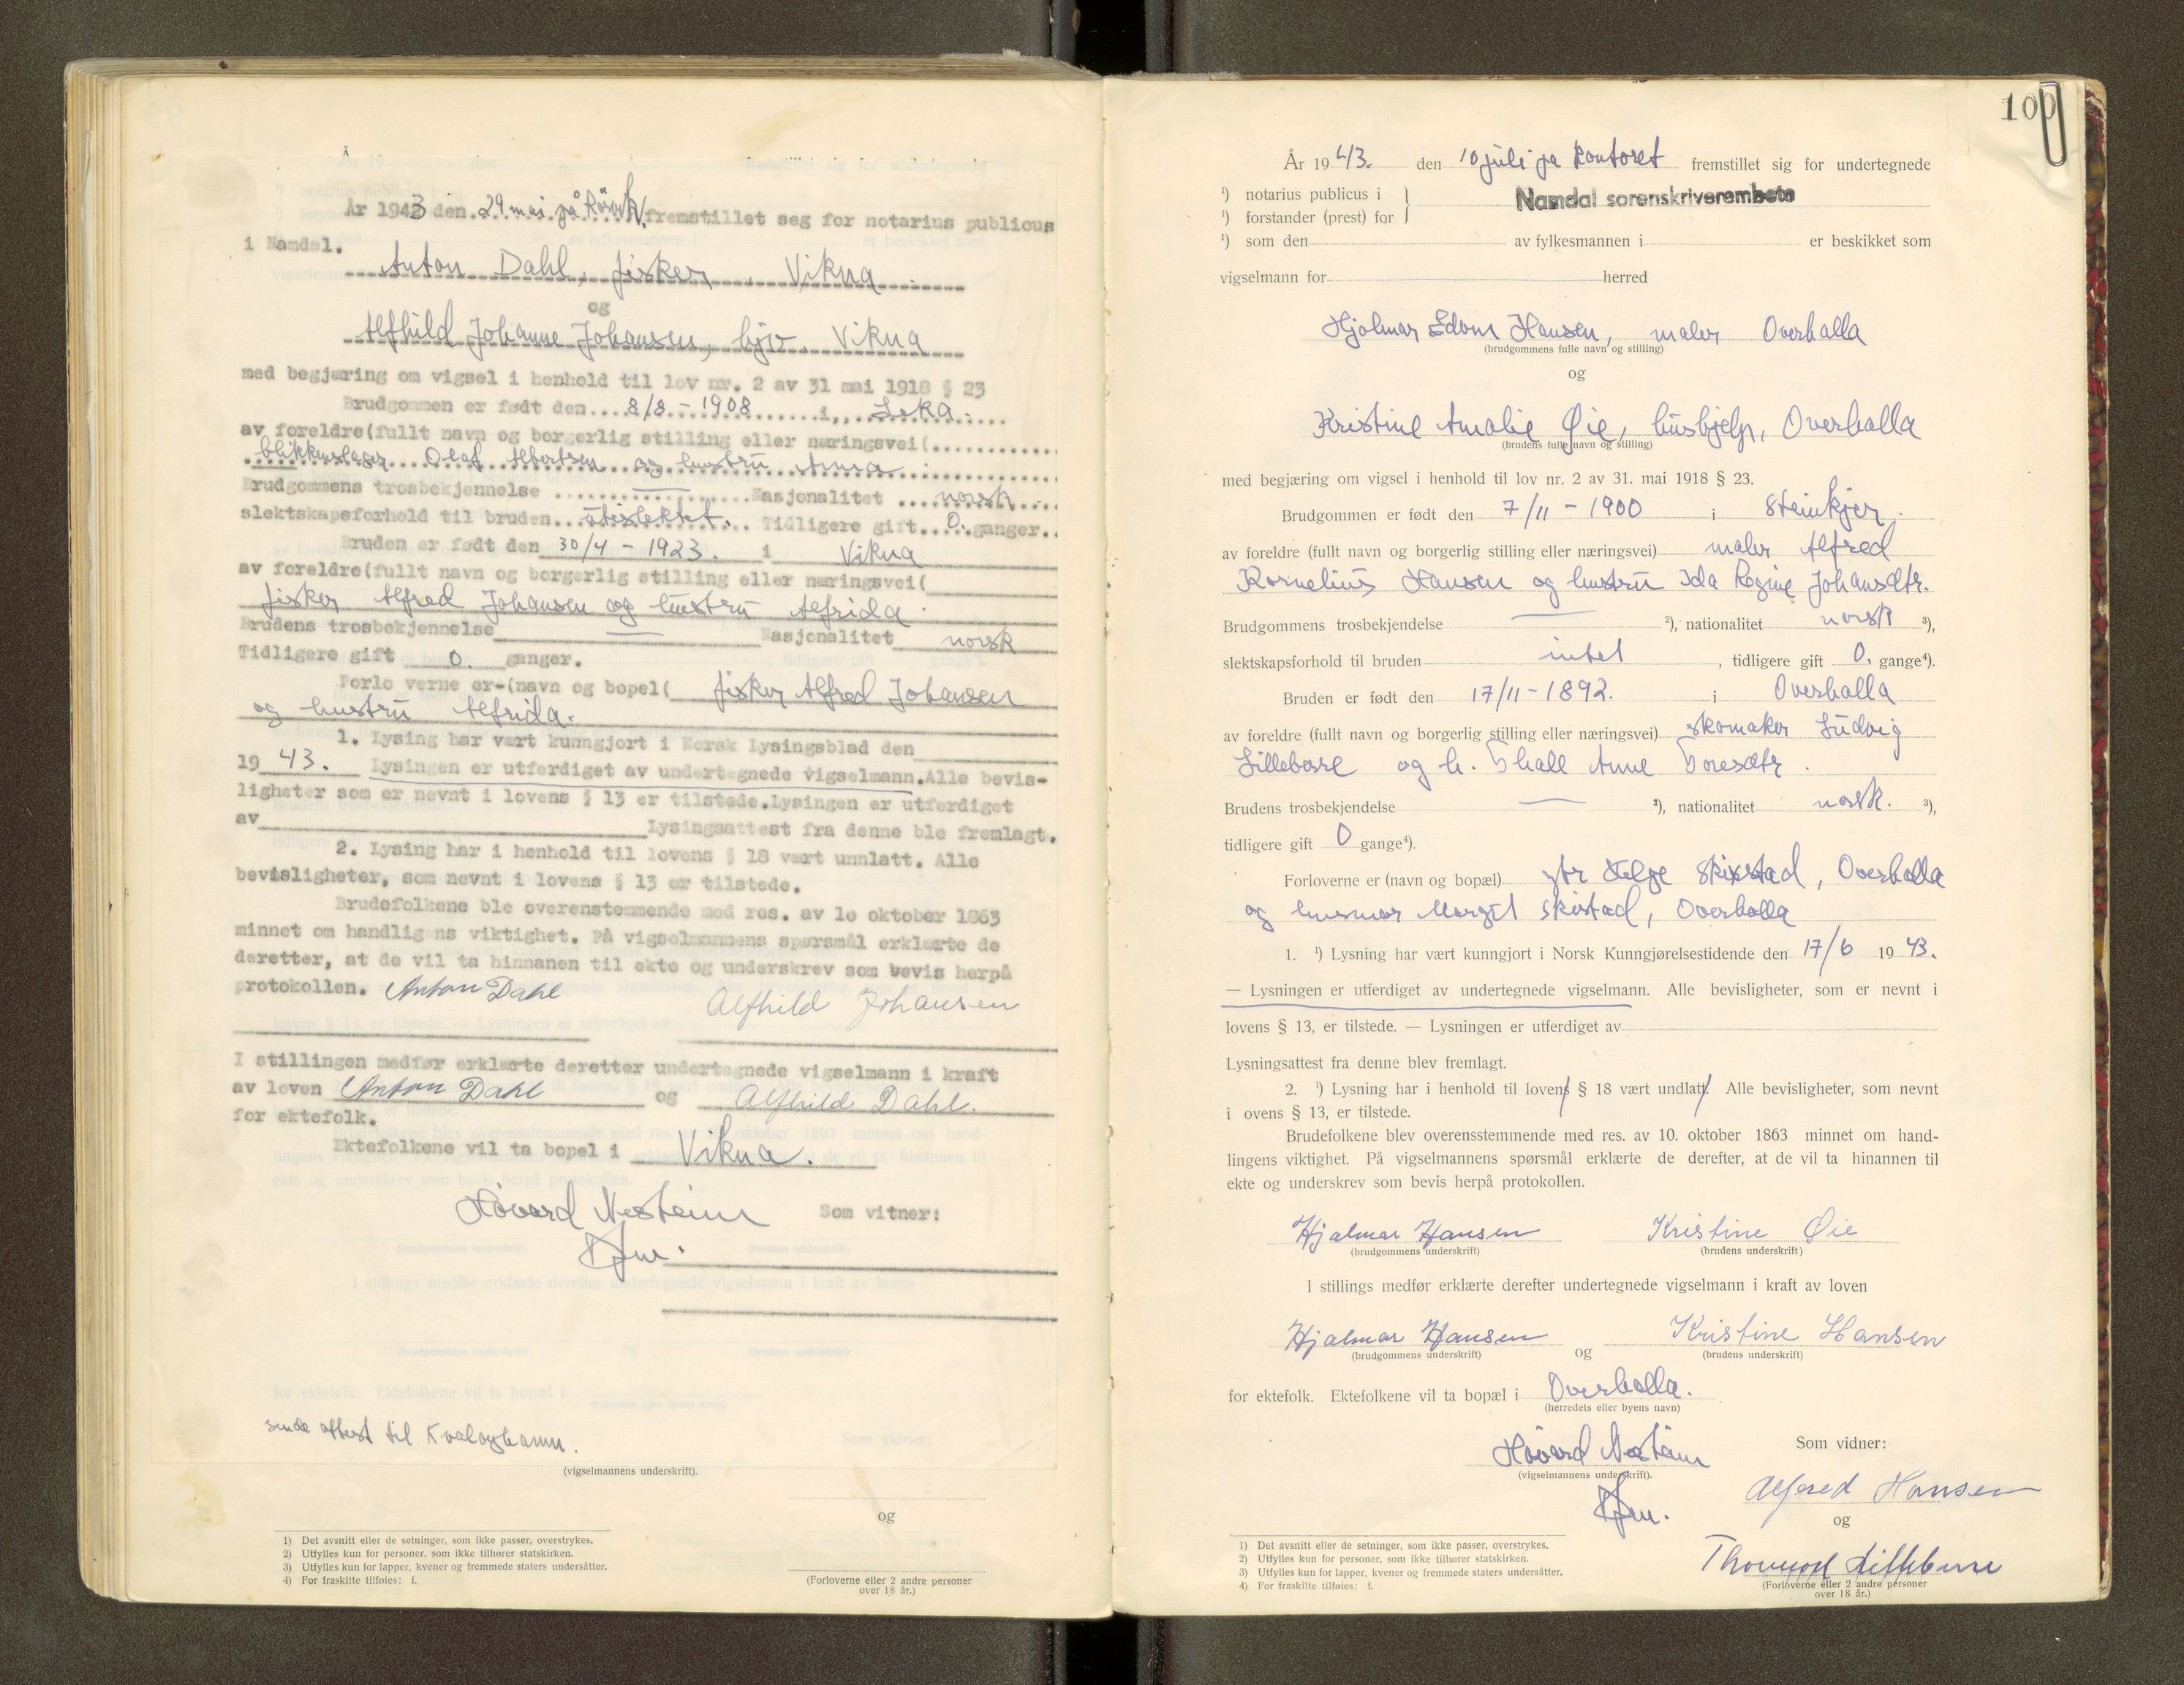 År 1943 den 29 mai på Rörvik fremstillet seg for notarius publicus
i Namdal.
Anton Dahl, fisker, Vikna
og
Alfhild Johanne Johansen, hjv. Vikna
med begjæring om vigsel i henhold til lov nr. 2 av 31 mai 1918 § 23
Brudgommen er født den 8/8 - 1908 i Leka.
av foreldre(fullt navn og borgerlig stilling eller næringsvei(
blikkenslager Olaf Albertsen og hustru Anna
Brudgommens trosbekjennelse — Nasjonalitet norsk
slektskapsforhold til bruden utislektet. Tidligere gift 0. ganger.
Bruden er født den 30/4 - 1923. i Vikna
av foreldre(fullt navn og borgerlig stilling eller næringsvei(
fisker Alfred Johansen og hustru Alfrida.
Brudens trosbekjennelse — Nasjonalitet norsk
Tidligere gift 0. ganger.
Forlo verne er-(navn og bopel( fisker Alfred Johansen
og hustru Alfrida.
1. Lysing har vært kunngjort i Norsk Lysingsblad den
19 43. Lysingen er utferdiget av undertegnede vigselmann.Alle bevis-
ligheter som er nevnt i lovens § 13 er tilstede.Lysingen er utferdiget
av Lysingsattest fra denne ble fremlagt.
2. Lysing har i henhold til lovens § 18 vært unnlatt. Alle
bevisligheter, som nevnt i lovens § 13 er tilstede.
Brudefolkene ble overenstemmende med res. av 10 oktober 1863
minnet om handlig ns viktighet. På vigselmannens spørsmål erklærte de
deretter, at de vil ta hinnanen til ekte og underskrev som bevis herpå
protokollen. Anton Dahl Alfhild Johansen
I stillingen medfør erklærte deretter undertegnede vigselmann i kraft
av loven Anton Dahl og Alfhild Dahl.
for ektefolk.
Ektefolkene vil ta bopel i Vikna.
Håvard Nesteim Som vitner:
sende attest til Kvaløyhamn.
(vigselmannens underskrift).
og
1) Det avsnitt eller de setninger, som ikke passer, overstrykes.
2) Utfylles kun for personer, som ikke tilhører statskirken.
3) Utfylles kun for lapper, kvener og fremmede staters undersåtter.
4) For fraskilte tilføies: f.
(Forloverne eller 2 andre personer
over 18 år.)
100
År 19 43. den 10 juli på kontoret fremstillet sig for undertegnede
¹) notarius publicus i
Namdal sorenskriverembete
¹) forstander (prest) for
¹) som den av fylkesmannen i er beskikket som
vigselmann for herred
Hjalmar Edvin Hansen, maler Overhalla
(brudgommens fulle navn og stilling)
og
Kristine Amalie Øie, hushjelp, Overhalla
(brudens fulle navn og stilling)
med begjæring om vigsel i henhold til lov nr. 2 av 31. mai 1918 § 23.
Brudgommen er født den 7/11 - 1900 i Steinkjer.
av foreldre (fullt navn og borgerlig stilling eller næringsvei) maler Alfred
Kornelius Hansen og hustru Ida Regine Johansdtr.
Brudgommens trosbekjendelse — ²), nationalitet norsk ³),
slektskapsforhold til bruden intet, tidligere gift 0. gange⁴).
Bruden er født den 17/11 - 1892. i Overhalla
av foreldre (fullt navn og borgerlig stilling eller næringsvei) skomaker Ludvig
og h. Anne Toresdtr.
Brudens trosbekjendelse — ²), nationalitet norsk. ³),
tidligere gift 0 gange⁴).
Forloverne er (navn og bopæl) Helge Skistad, Overhalla
og husmor Margit Skistad, Overhalla
1. ¹) Lysning har vært kunngjort i Norsk Kunngjørelsestidende den 17/6 19 43.
— Lysningen er utferdiget av undertegnede vigselmann. Alle bevisligheter, som er nevnt i
lovens § 13, er tilstede. — Lysningen er utferdiget av
Lysningsattest fra denne blev fremlagt.
2. ¹) Lysning har i henhold til lovens § 18 vært undlatt. Alle bevisligheter, som nevnt
i ovens § 13, er tilstede.
Brudefolkene blev overensstemmende med res. av 10. oktober 1863 minnet om hand-
lingens viktighet. På vigselmannens spørsmål erklærte de derefter, at de vil ta hinannen til
ekte og underskrev som bevis herpå protokollen.
Hjalmar Hansen Kristine Øie
(brudgommens underskrift) (brudens underskrift)
I stillings medfør erklærte derefter undertegnede vigselmann i kraft av loven
Hjalmar Hansen og Kristine Hansen
(brudgommens underskrift) (brudens underskrift)
for ektefolk. Ektefolkene vil ta bopæl i Overhalla.
(herredets eller byens navn)
Håvard Nesteim Som vidner:
(vigselmannens underskrift).
Alfred Hansen
og
1) Det avsnitt eller de setninger, som ikke passer, overstrykes.
2) Utfylles kun for personer, som ikke tilhører statskirken.
3) Utfylles kun for lapper, kvener og fremmede staters undersåtter.
4) For fraskilte tilføies: f.
(Forloverne eller 2 andre personer
over 18 år.)